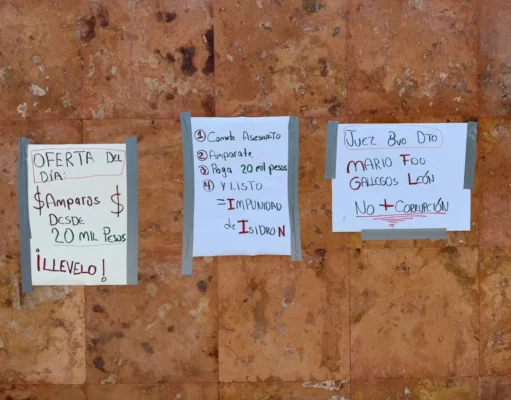 OFERTA DEL
DÍA:
$ Amparos $
DESDE
20 MIL PESOS
¡LLEVELO!
1 Comete Asesinato
2 Amparate
3 Paga 20 mil pesos
4 Y LISTO
= IMPUNIDAD
de ISIDRO N
JUEZ 8vo DTO
MARIO FOO
GALLEGOS LEÓN
No + CORRUPCIÓN